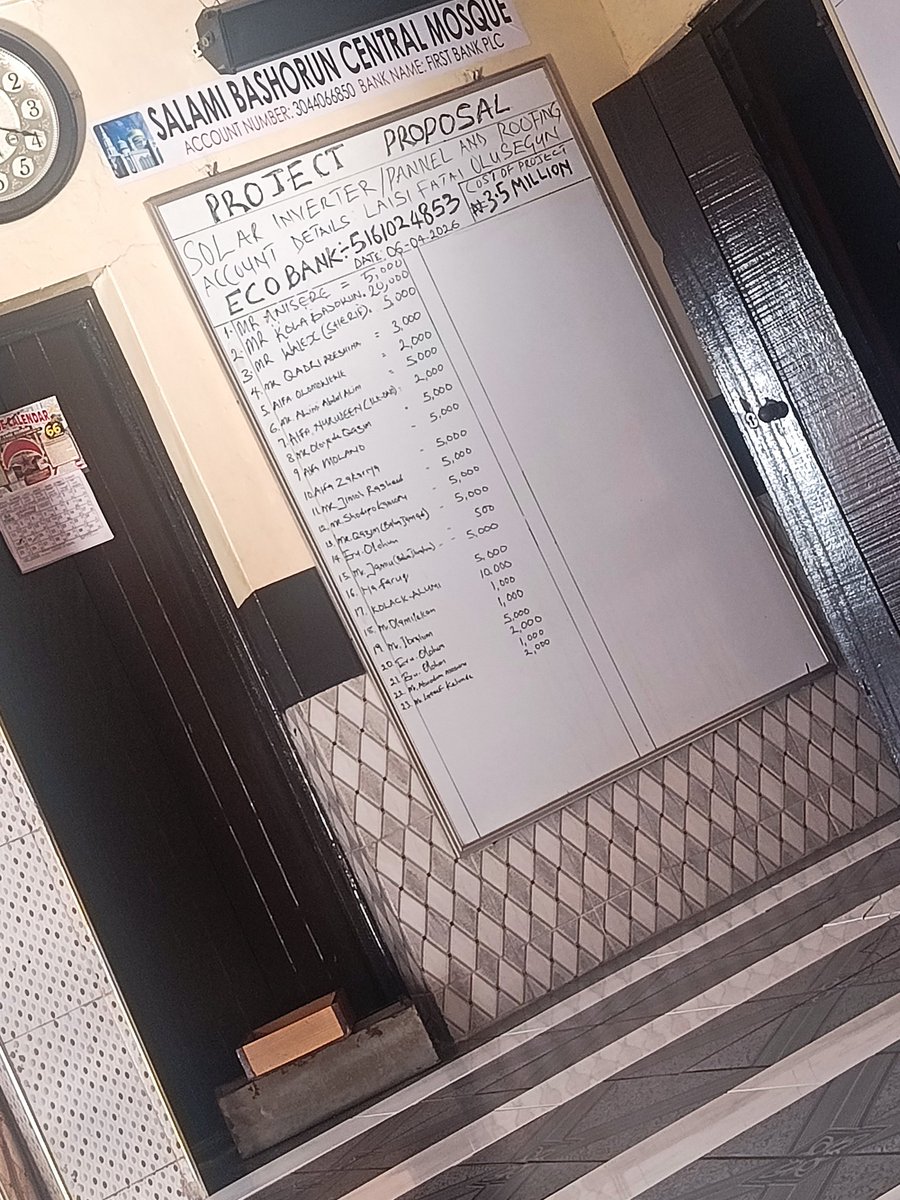 SALAMI BASHORUN CENTRAL MOSQUE
ACCOUNT NUMBER: 3044066850 BANK NAME: FIRST BANK PLC
PROJECT PROPOSAL
SOLAR INVERTER/PANNEL AND ROOFING
ACCOUNT DETAILS: LAISI FATAI OLUSEGUN
ECO BANK:-5161024853
COST OF PROJECT
₦3.5 MILLION
DATE: 06-04-2026
1. MR ANISERE = 5,000
2. MR KOLA BASORUN. 20,000
3. MR WALEX (SHERIF). 5,000
4. MR QADRI ADESHINA = 3,000
5. AlFA OLOMOWEWE = 2,000
6. MR Alimi Abdul Alim = 5,000
7. AlFA NURUDEEN 2,000
8. MR Olayide Qazim - 5,000
9. Alfa MOLAND - 5,000
10. Alfa Zakariya - 5,000
11. MR Jimoh Rasheed - 5,000
12. MR Shodipo - 5,000
13. MR. Qazim - 5,000
14. Eru. Olohun - 500
15. Mr. Jamiu - 5,000
16. Faruq 5,000
17. KOLACK ALUMI 10,000
18. Mr Olamilekan 1,000
19. Mr. Ibrahim 1,000
20. Eru. Olohun 5,000
21. Eru. Olohun 2,000
22. Mr. 1,000
23. Mr. Lateef Kehinde 2,000
CALENDAR
66
2
3
4
5